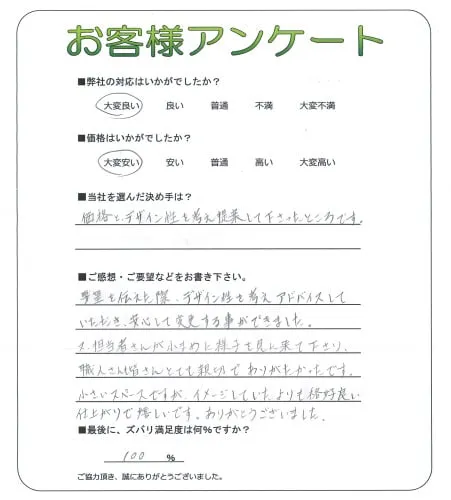 お客様アンケート
■弊社の対応はいかがでしたか?
大変良い 良い 普通 不満 大変不満
■価格はいかがでしたか?
大変安い 安い 普通 高い 大変高い
■当社を選んだ決め手は?
価格と、デザイン性も考え提案して下さったところです。
■ご感想・ご要望などをお書き下さい。
要望を伝えた際、デザイン性も考えアドバイスして
いただき、安心して変更する事ができました。
又、担当者さんが小まめに様子を見に来て下さり、
職人さん皆さんとても親切でありがたかったです。
小さいスペースですが、イメージしていたよりも格好良い
仕上がりで嬉しいです。ありがとうございました。
■最後に、ズバリ満足度は何%ですか?
100 %
ご協力頂き、誠にありがとうございました。